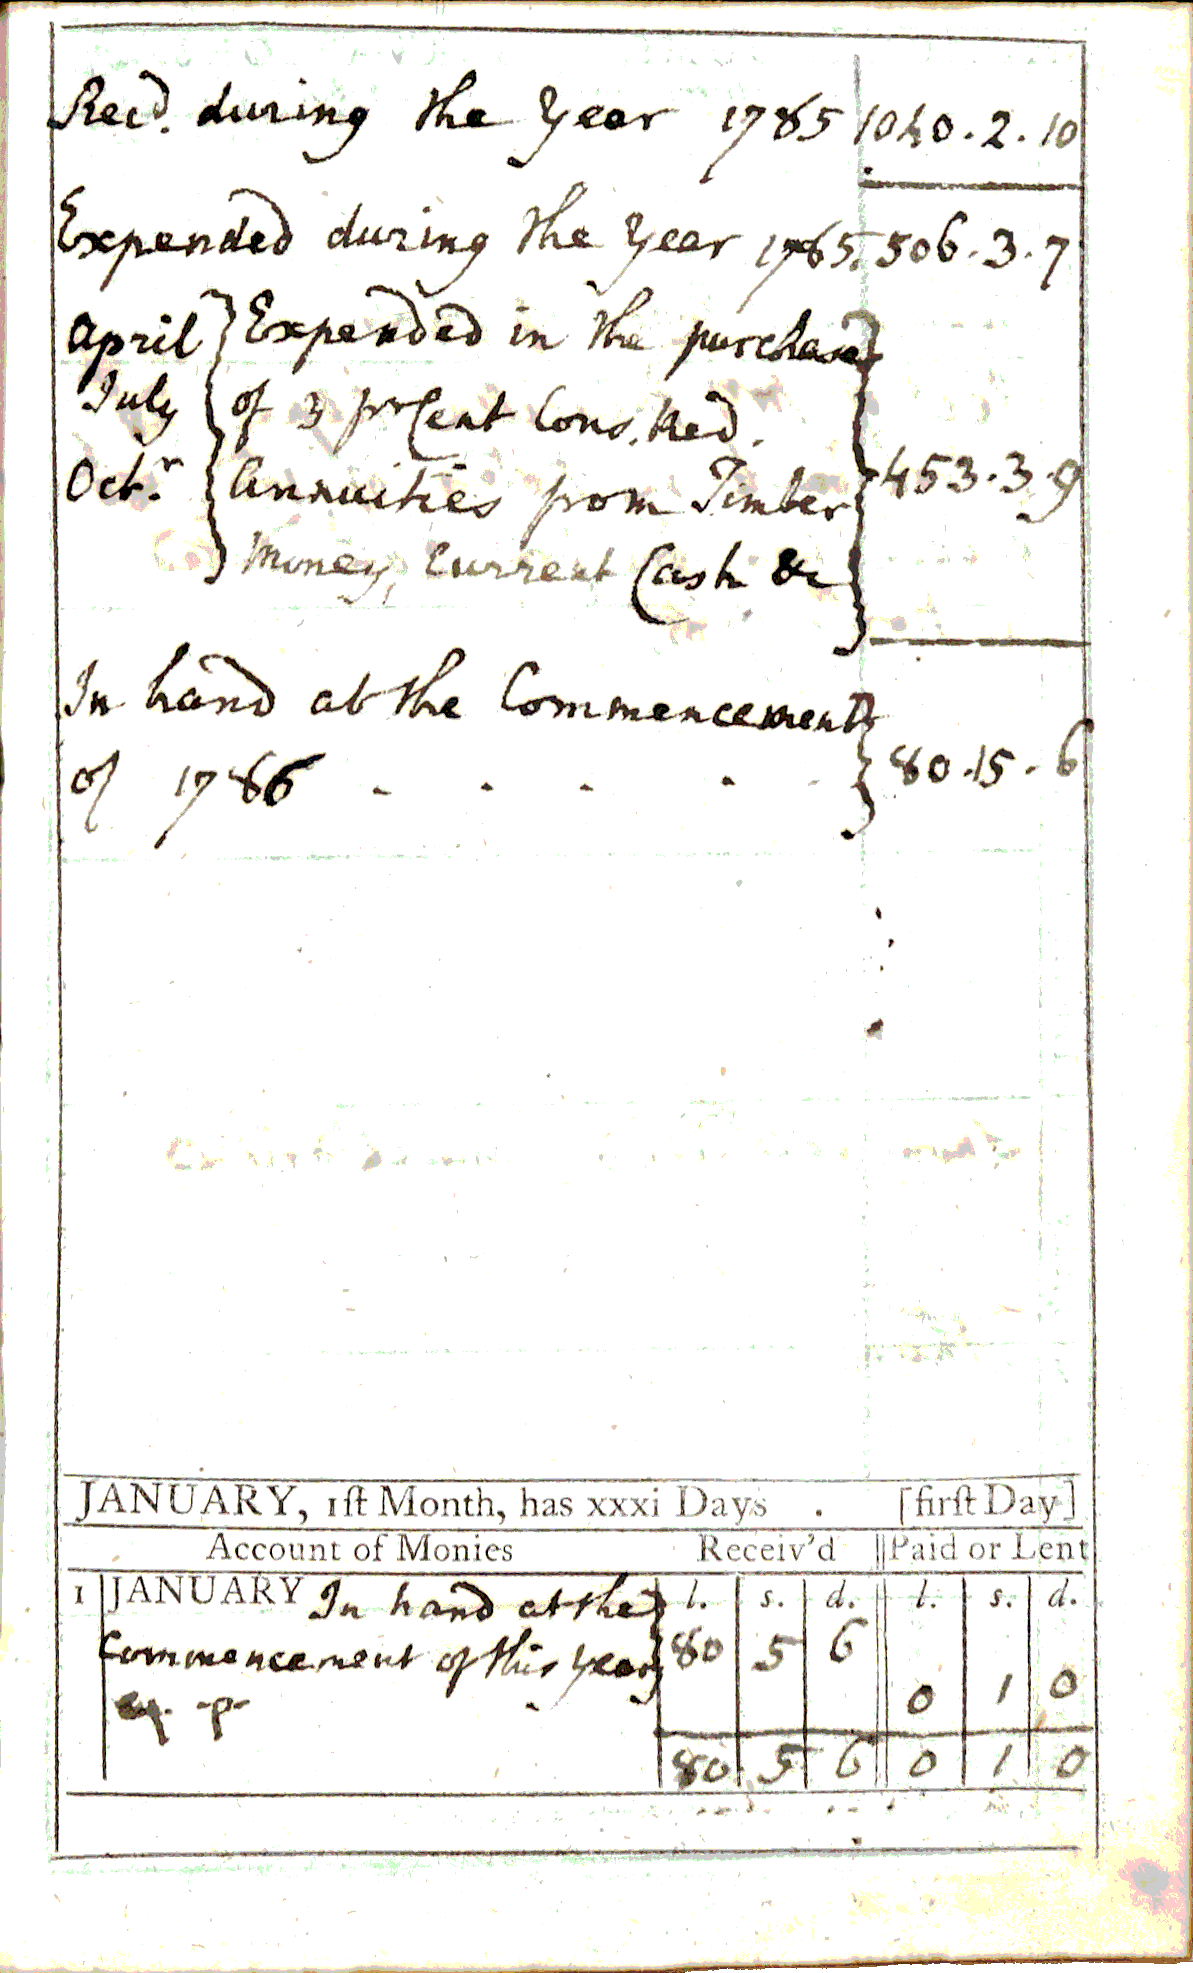 Recd. during the Year 1785 1040.2.10
Expended during the Year 1785. 506.3.7
April Expended in the purchase
July of 3 pr Cent Cons. Red.
Octr. Annuities from Timber 453.3.9
Money, Current Cash &c
In hand at the Commencement
of 1786 - - - - - 80.15.6
JANUARY, 1ſt Month, has xxxi Days . [firſt Day]
Account of Monies Receiv'd Paid or Lent
1 JANUARY In hand at the l. s. d. l. s. d.
Commencement of this year 80 5 6
p - 0 1 0
80 5 6 0 1 0